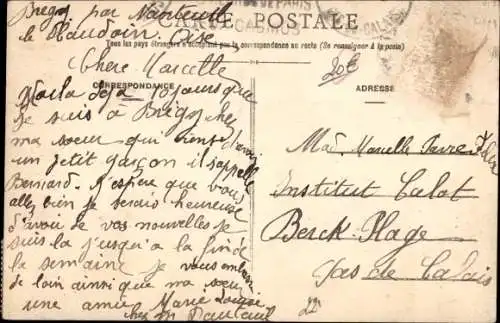 Brégy par Nanteuil
le Haudoin Oise
CARTE POSTALE
Tous les pays étrangers n'acceptent pas la correspondance au recto (Se renseigner à la poste)
CORRESPONDANCE
ADRESSE
20F
Chère Marcelle
Voila déjà 10 jours que
je suis à Brégy chez
ma soeur qui vient d'avoir
un petit garçon il s'appelle
Bernard. J'espère que vous
allez bien je serais heureuse
d'avoir de vos nouvelles je
suis la jusqu'a la fin de
la semaine je vous embrasse
de loin ainsi que ma soeur
une amie Marie Louise
chez M
Mad. Marcelle
Institut Calot
Berck-Plage
Pas de Calais